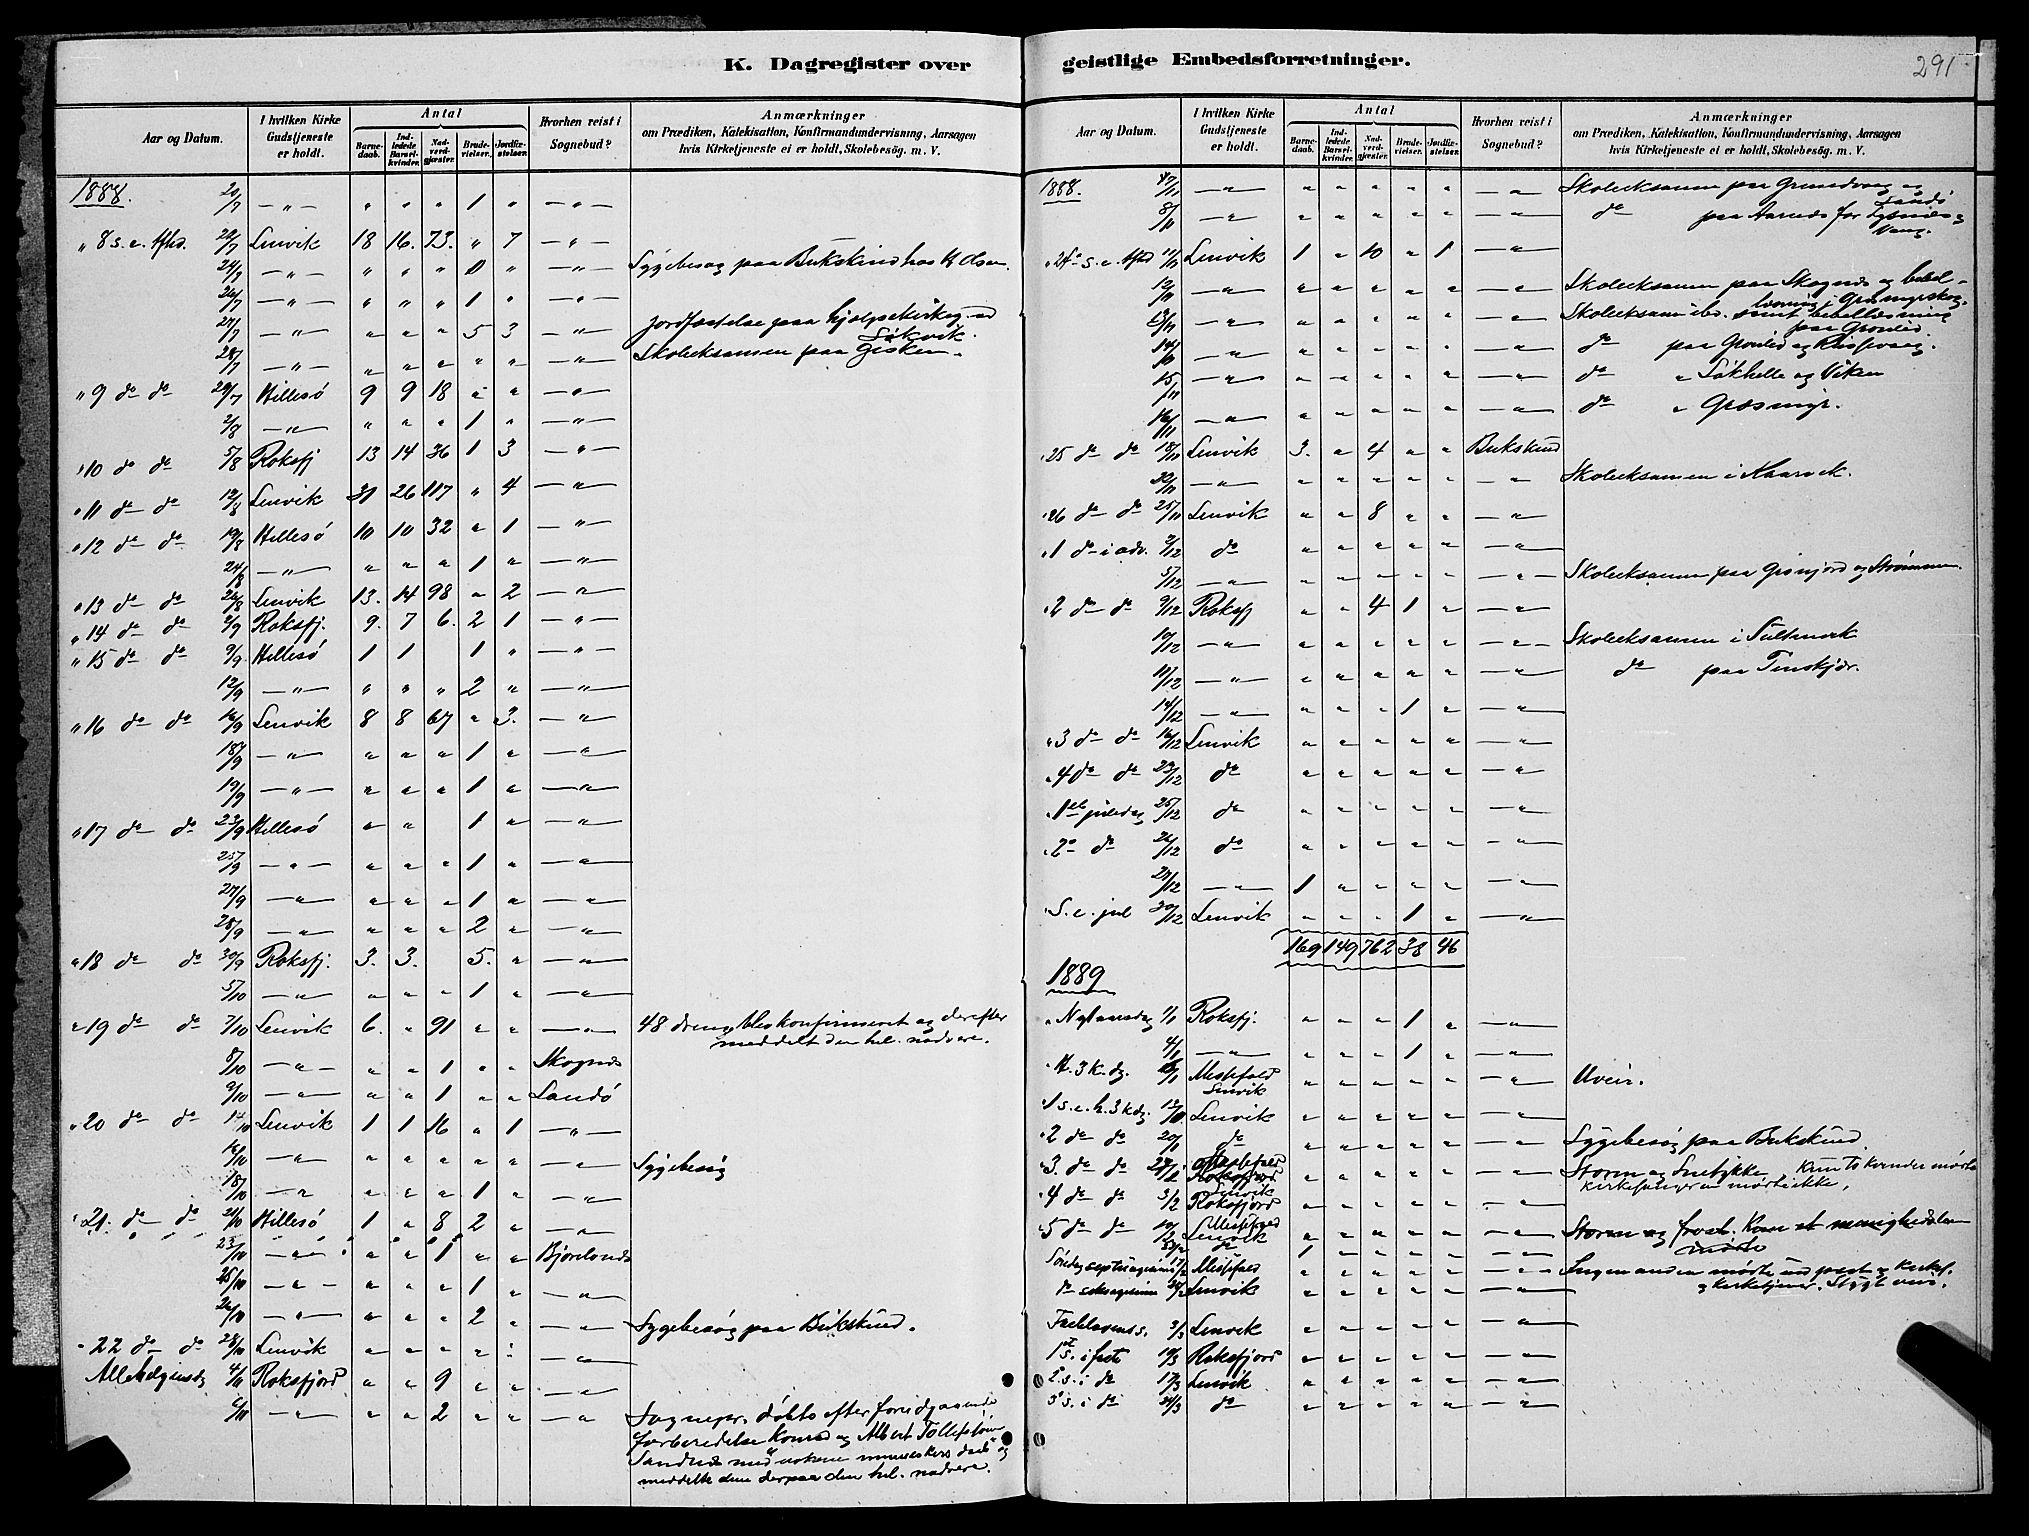 K. Dagregister over
geistlige Embedsforretninger.
291
Aar og Datum.
I hvilken Kirke Gudstjeneste er holdt.
Antal
Barnedaab.
Indledede Barselkvinder.
Nadverdgjæster.
Brudevielser.
Jordfæstelser.
Hvorhen reist i Sognebud?
Anmærkninger
om Prædiken, Katekisation, Konfirmandundervisning, Aarsagen
hvis Kirketjeneste ei er holdt, Skolebesög. m. V.
1888. 20/7 — " — " " " 1 " — " —
" 8 s. e. tfhd. 22/7 Lenvik 18 16. 73. " 7 — " —
24/7 — " — " " " 0 " — " — Sygebesøg paa Bukskind hos Olsen.
26/7 — " — " " " 1 " — " —
27/7 — " — " " " 5 3 — " — Jordfæstelse paa hjælpekirkeg. ved
28/7 — " — " " " " " — " — Skoleeksamen paa Gisken.
" 9 do do 29/7 Hillesö 9 9 18 " " — " —
2/8 — " — " " " 1 " — " —
" 10 do do 5/8 Roksfj 13 14 36 1 3 — " —
" 11 do do 12/8 Lenvik 31 26 117 " 4 — " —
" 12 do do 19/8 Hillesö 10 10 32 " 1 — " —
24/8 — " — " " " 1 " — " —
" 13 do do 26/8 Lenvik 13. 14 98 " 2 — " —
" 14 do do 2/9 Roksfj. 9. 7 6. 2 1 — " —
" 15 do do 9/9 Hillesö 1 1 1 " — " —
12/9 — " — " " " 2 " — " —
" 16 do do 16/9 Lenvik 8 8 67 " 3. — " —
18/9 — " — " " " 1 " — " —
19/9 — " — " " " 1 " — " —
" 17 do do 23/9 Hillesö " " 1 " — " —
25/9 — " — " " " 1 " — " —
27/9 — " — " " " 1 " — " —
28/9 — " — " " " 2 " — " —
" 18 do do 30/9 Roksfj. 3. 3. 5. " — " —
5/10 — " — " " " 1 " — " —
" 19 do do 7/10 Lenvik 6. " 91 " " — " — 48 drenge blev konfirmeret og derefter
meddelt den hel. nadvere.
8/10 — " — " " 1 " " Skognes
9/10 — " — " " 1 " " Sandö
" 20 do do 14/10 Lenvik 1 1 16 " 1 — " —
16/10 — " — " " " " " — " — Sygebesøg
18/10 — " — " " " 1 " — " —
" 21. do do 21/10 Hillesö 1 " 8 2 " — " —
23/10 — " — " " 1 " " Bjorelvnes
25/10 — " — " " " 1 " — " —
26/10 — " — " " " 2 " — " — Sygebesøg paa Bukskind.
" 22 do do 28/10 Lenvik " " " " " — " —
Allehelgensdg 4/11 Roksfjord " " 9 " " — " —
6/11 — " — " " 2 " " — " — Sognepr. døbte efter foregaaende
forberedelse Konrad og Albert Tollefsön
meddelte dem derpaa den hel. nadvere.
Aar og Datum.
I hvilken Kirke Gudstjeneste er holdt.
Antal
Barnedaab.
Indledede Barselkvinder.
Nadverdgjæster.
Brudevielser.
Jordfæstelser.
Hvorhen reist i Sognebud?
Anmærkninger
om Prædiken, Katekisation, Konfirmandundervisning, Aarsagen
hvis Kirketjeneste ei er holdt, Skolebesög. m. V.
1888. 7/11 — " — " " " " " — " — Skoleeksamen paa Grundvaag og
8/11 — " — " " " " " — " — do paa Aarnes for
" 24de s. e. tfhd 11/11 Lenvik 1 " 10 " 1 — " —
12/11 — " — " " " " " — " — Skoleeksamen paa Skognes og
13/11 — " — " " " " " — " — Skoleeksam. ibd. samt bibellæsning
14/11 — " — " " " " " — " — do paa Grönlid og
15/11 — " — " " " " " — " — do " Lökhelle og Viken
16/11 — " — " " " " " — " — do " Græsmyr.
" 25 do do 18/11 Lenvik 3. " 4 " " Bukskind
22/11 — " — " " " " " — " — Skoleeksamen i Kaarvik.
" 26 do do 25/11 Lenvik " " 8 " " — " —
" 1 do i adv. 2/12 do " " " " " — " —
5/12 — " — " " " " " — " — Skoleeksamen paa Grönjord og Strömmen
" 2 do do 9/12 Roksfj " " 4 1 " — " —
10/12 — " — " " " " " — " — Skoleeksamen i
11/12 — " — " " " " " — " — do paa Tenskjær.
14/12 — " — " " " 1 " — " —
" 3 do do 16/12 Lenvik " " " " " — " —
" 4 do do 23/12 do " " " " " — " —
" 1ste juledag 25/12 do " " " " " — " —
" 2den do 26/12 do " " " " " — " —
29/12 — " — 1 " " " " — " —
" S. e. jul 30/12 Lenvik " " " 1 " — " —
169 149 762 38 46
1889
" Nytaarsdag 1/1 Roksfj. " " " 1 " — " —
4/1 — " — " " " 1 " — " —
" H. 3 K. dg. 6/1 Lenvik " " " " " — " — Uveir.
" 1 s. e. h. 3 kdg. 13/1 Lenvik " " " " " — " —
" 2 do do 20/1 do " " " " " — " — Sygebesøg paa Bukskind.
" 3. do do 27/1 " " " " " — " — Storm og Snetykke, kun to kvinder mødte
kirkesangeren mødte ikke.
" 4 do do 3/2 Roksfjord " " " " " — " —
" 5 do do 10/2 Lenvik " " " " " — " — Storm og frost. Kun et menighedslem
mødte
do 1 " " " " — " —
Söndag septuagesima 17/2 Messefald " " " " " — " — Ingen anden mødte end prest og kirkes.
do seksagesima 24/2 Lenvik " " " " " — " — og kirketjener. Stygt veir.
Fastelavens s. 3/3 Lenvik " " " " " — " —
1ste s. i faste 10/3 Roksfjord " " " " " — " —
2. s. i do 17/3 Lenvik " " " " " — " —
3. s. i do 24/3 do " " " " " — " —